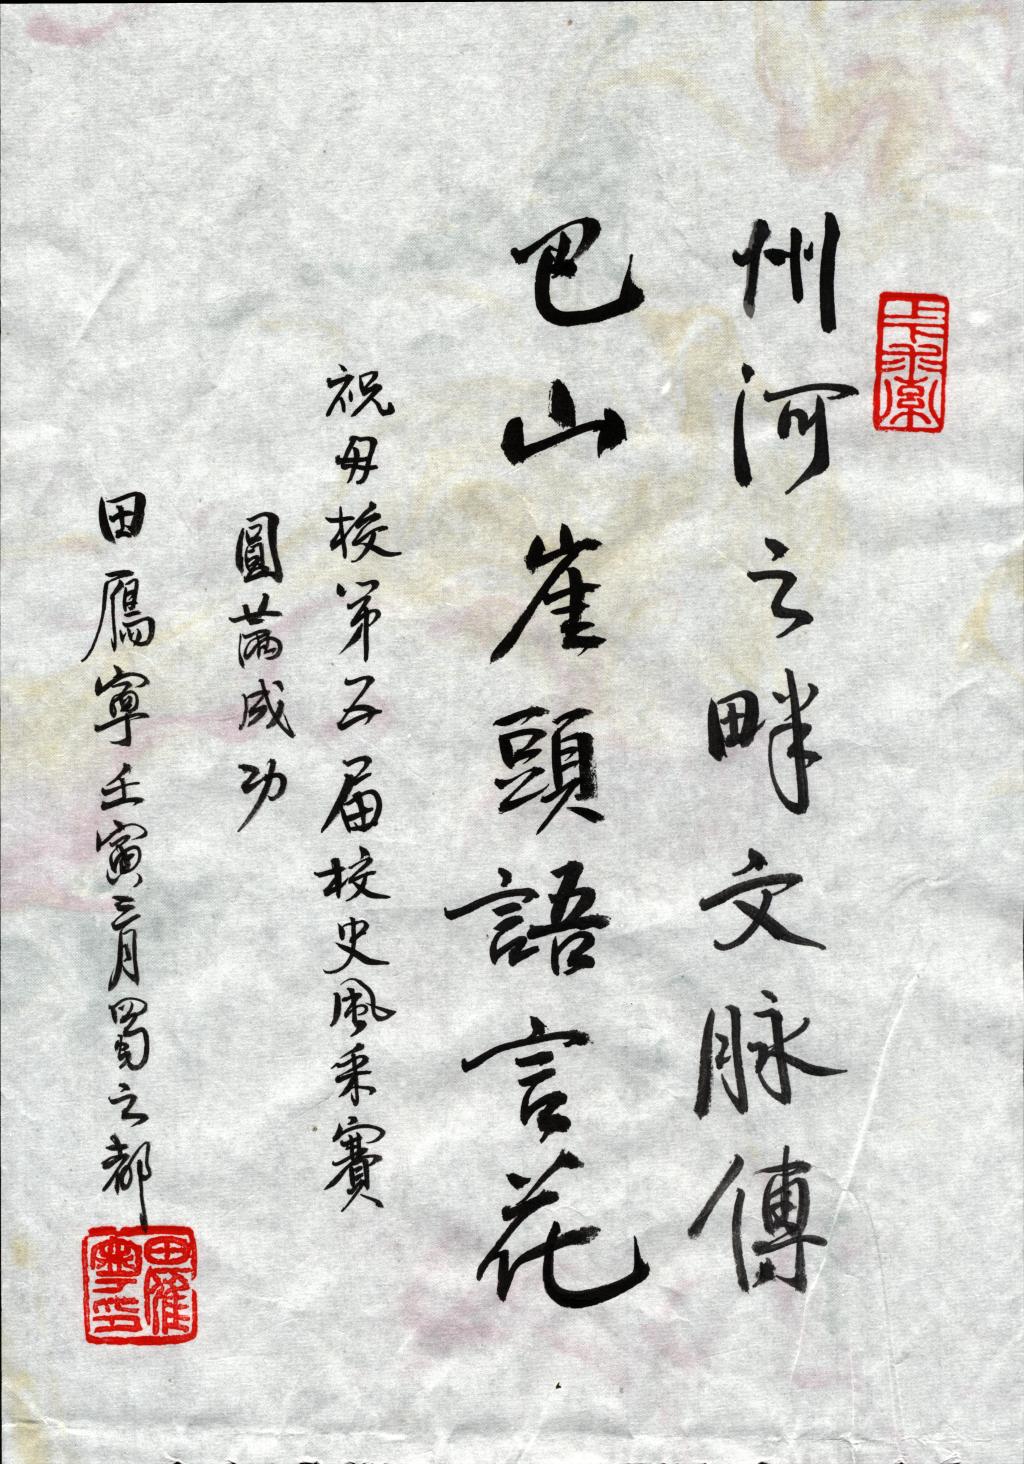 州河之畔文脉傳
巴山崖頭語言花
祝母校第五届校史風采賽
圓滿成功
田鴈寧壬寅三月蜀之都